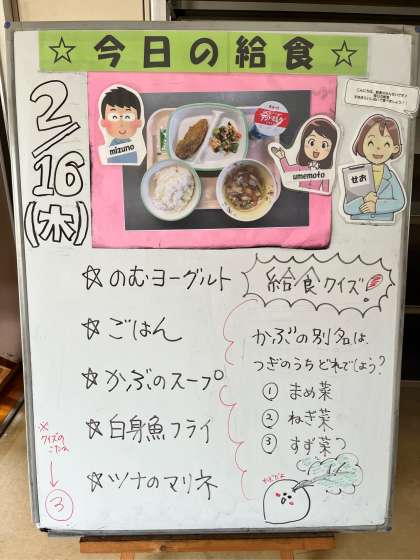 ☆今日の給食☆
2/16
(木)
mizuno
umemoto
せお
☆のむヨーグルト
☆ごはん
☆かぶのスープ
☆白身魚フライ
☆ツナのマリネ
給食クイズ
かぶの別名は、
つぎのうちどれでしょう?
① まめ菜
② ねぎ菜
③ すず菜
※
クイズの
こたえ
↓
③